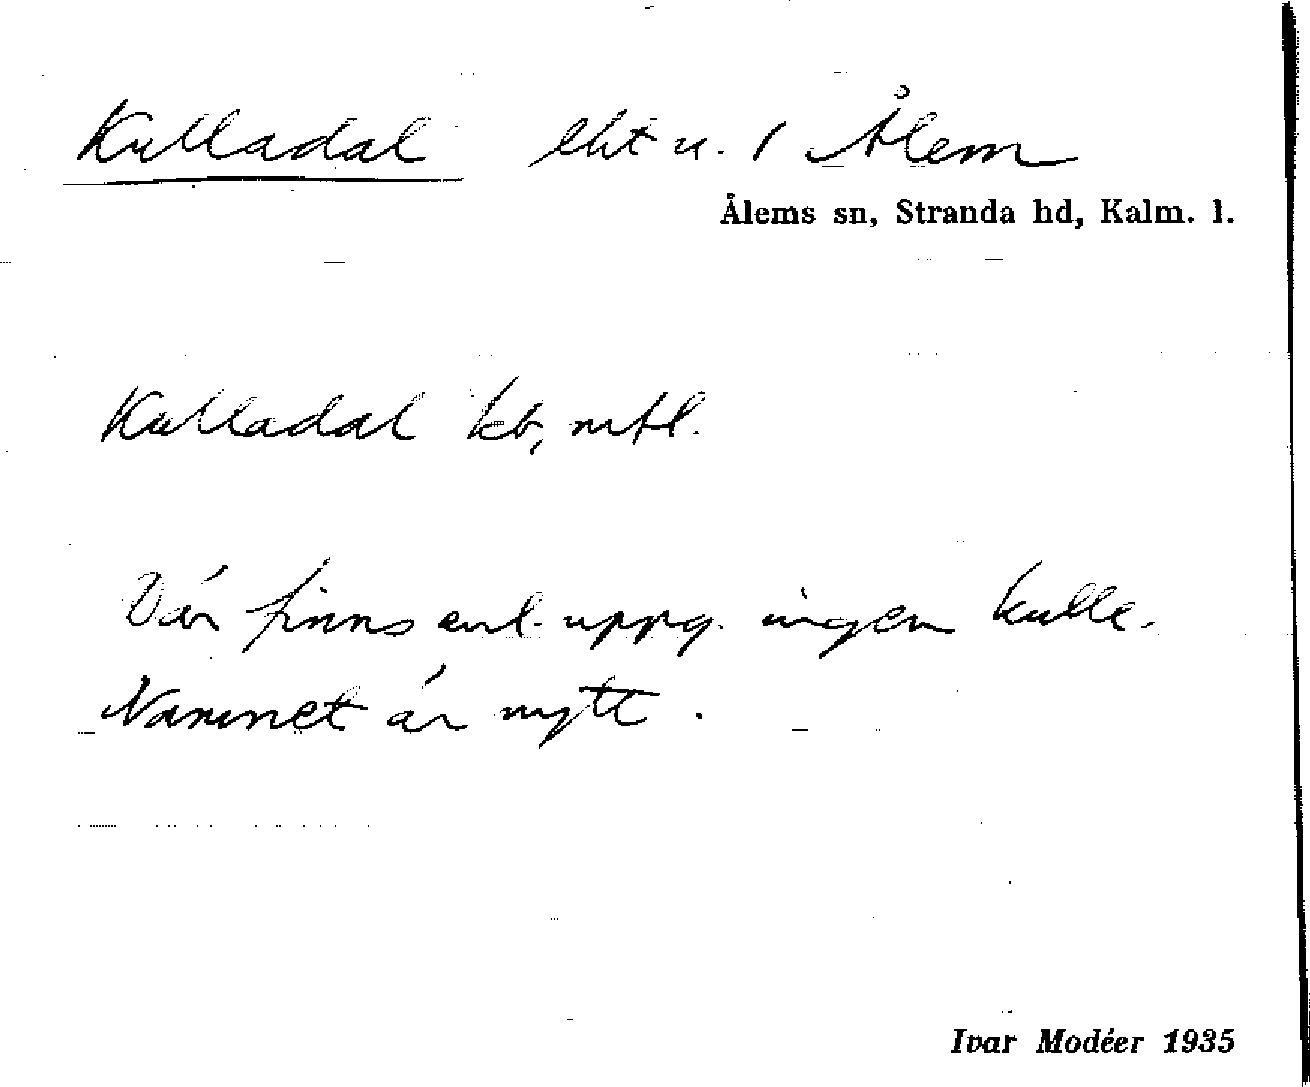 Kulladal lht u. 1 Ålem
Ålems sn, Stranda hd, Kalm. l.
Kulladal kb, mtl.
Där finns enl. uppg. ingen kulle.
Namnet är nytt.
Ivar Modéer 1935